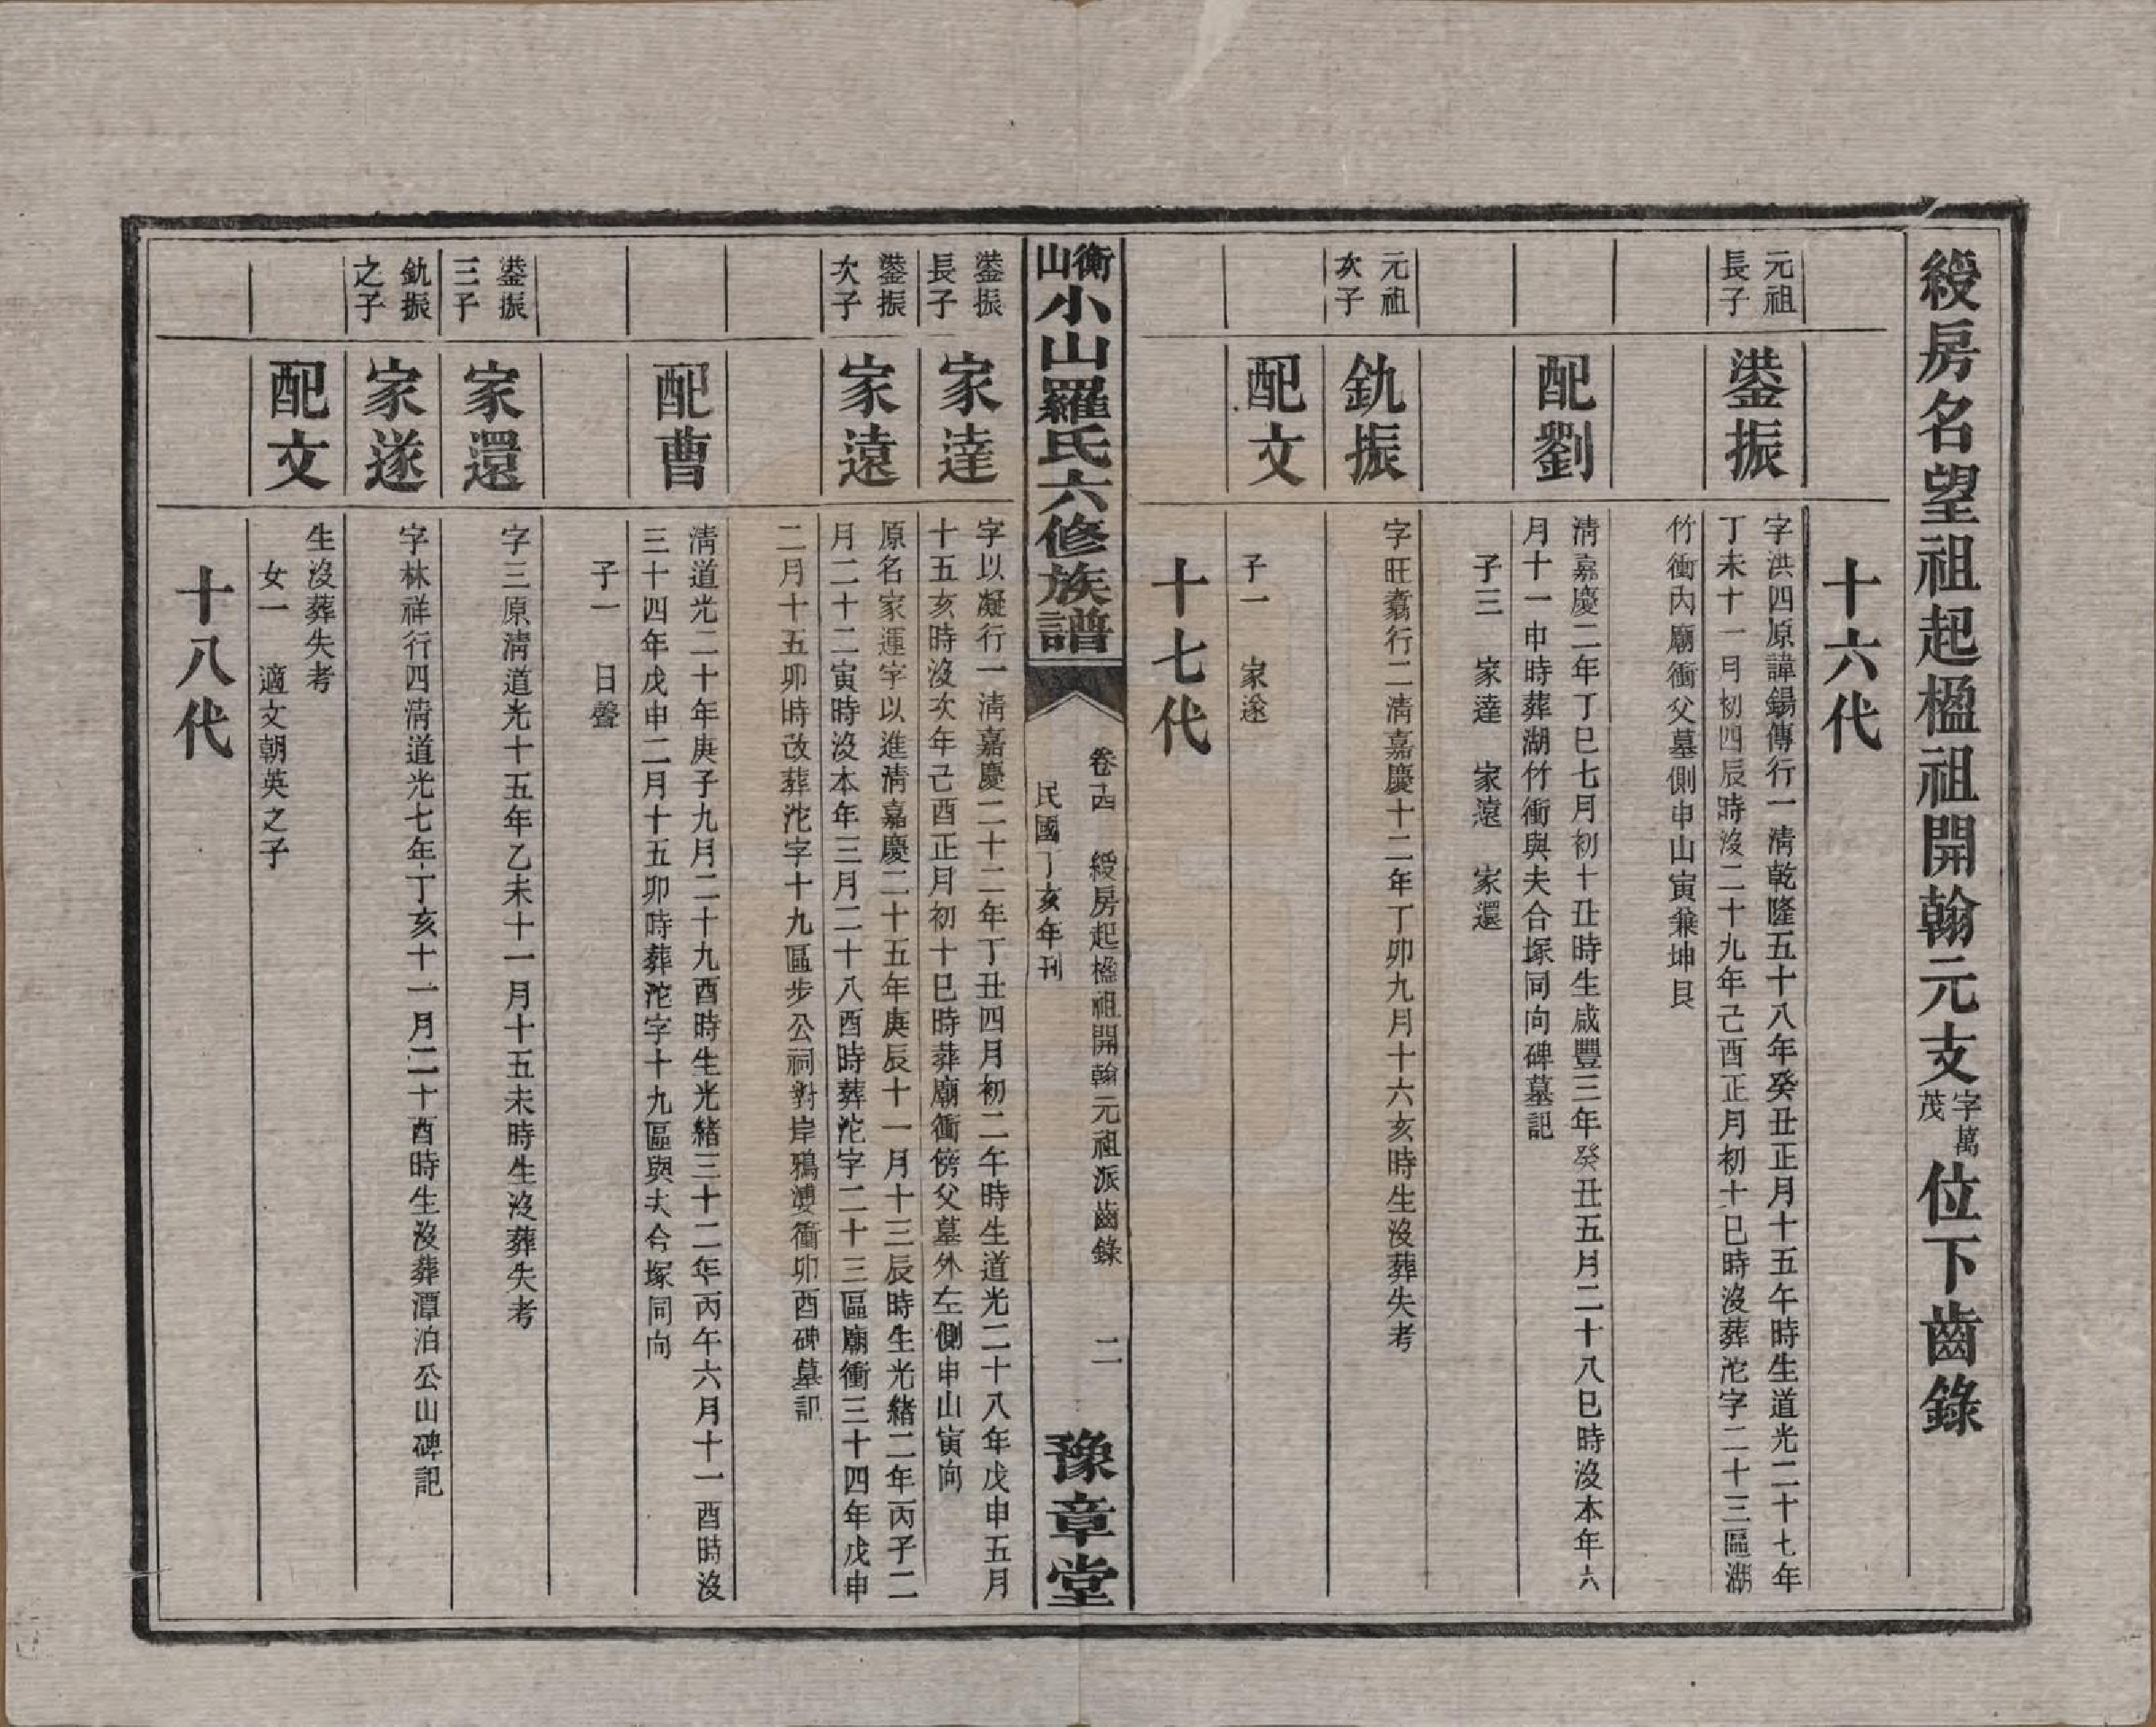 綬房名望祖起楹祖開翰元支字萬茂位下齒錄
十六代
元祖長子
鍙振
字洪四原諱錫傳行一清乾隆五十八年癸丑正月十五午時生道光二十七年
丁未十一月初四辰時沒二十九年己酉正月初十巳時沒葬沱字二十三區湖
竹衝內廟衝父墓側申山寅兼坤艮
配劉
清嘉慶二年丁巳七月初十丑時生咸豐三年癸丑五月二十八巳時沒本年六
月十一申時葬湖竹衝與夫合塚同向碑墓記
子三 家達 家遠 家還
元祖次子
釚振
字旺翥行二清嘉慶十二年丁卯九月十六亥時生沒葬失考
配文
子一 家遂
十七代
衡山小山羅氏六修族譜
卷十四 綬房起楹祖開翰元祖派齒錄 二
民國丁亥年刊
豫章堂
鍙振長子
家達
字以凝行一清嘉慶二十二年丁丑四月初二午時生道光二十八年戊申五月
十五亥時沒次年己酉正月初十巳時葬廟衝傍父墓外左側申山寅向
鍙振次子
家遠
原名家運字以進清嘉慶二十五年庚辰十一月十三辰時生光緒二年丙子二
月二十二寅時沒本年三月二十八酉時葬沱字二十三區廟衝三十四年戊申
二月十五卯時改葬沱字十九區步公祠對岸鴉婆衝卯酉碑墓記
配曹
清道光二十年庚子九月二十九酉時生光緒三十二年丙午六月十一酉時沒
三十四年戊申二月十五卯時葬沱字十九區與夫合塚同向
子一 日聲
鍙振三子
家還
字三原清道光十五年乙未十一月十五未時生沒葬失考
釚振之子
家遂
字林祥行四清道光七年丁亥十一月二十酉時生沒葬潭泊公山碑記
配文
生沒葬失考
女一 適文朝英之子
十八代